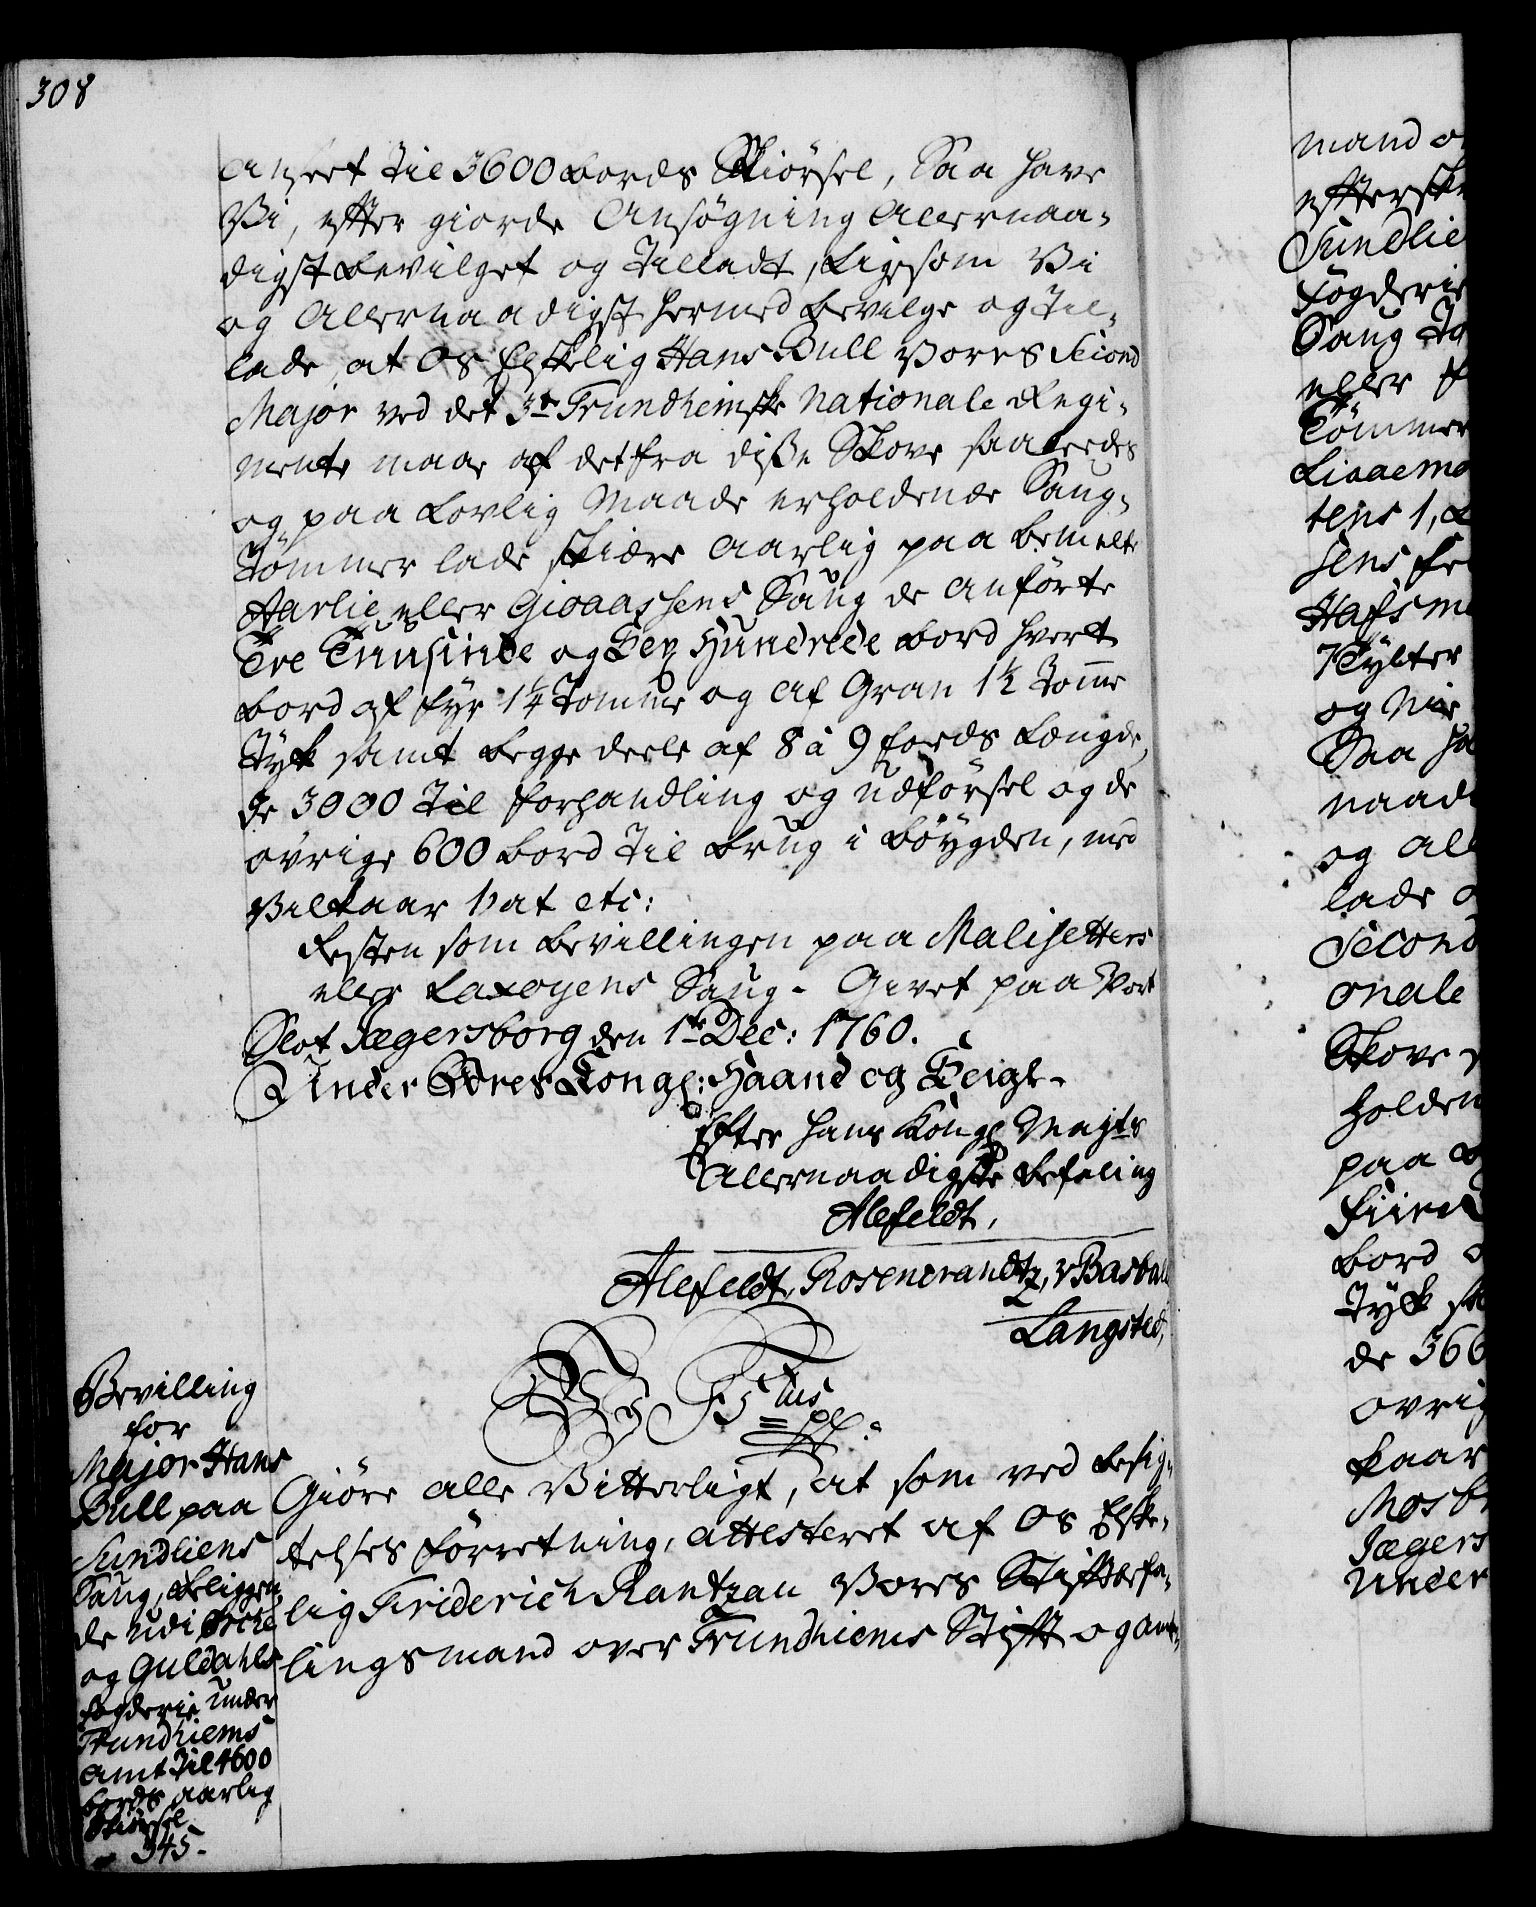 308
Ansert til 3600 bords Skiörsel, Saa have
Vi, efter giorde Ansögning Allernaa-
digst bevilget og Tilladt, Ligesom Vi
og Allernaadigst hermed bevilge og Til-
lade, at Os Elskelig Hans Bull Vores Second
Major ved det 3de Trundhiemske Nationale Regi-
mente maae af det fra disse Skove saaleedes
og paa Lovlig Maade erholdende Saug-
Tömmer lade skiære Aarlig paa bemelte
Aarlie eller Gioaassens Saug de anförte
Tre Tuusinde og Sex Hundrede bord hvert
bord af fyr 1¼ Tomme og af Gran 1½ Tomme
Tyk samt begge deele af 8 à 9 foeds Længde,
de 3000 Til forhandling og udförsel og de
övrige 600 bord Til brug i böygden, med
Vilkaar Hat etc:
Resten som bevillingen paa Malisetters
eller Laxoyens Saug. Givet paa Vort
Slot Jægersborg den 1te Dec: 1760.
Under Vores Kongl: Haand og Seigl.
Efter Hans Kongl Mayts
Allernaadigste befaling
Alefeldt,
Alefeldt, Rosencrandtz, v Basball
Langsted,
Wi F5tus pp:
Bevilling
for
Major Hans
Bull paa
Sundliens
Saug, beliggen
de udi Store
og Guldahls
fogderie under
Trundhiems
Amt Til 4600
bords aarlig
Skiörsel
345.
Giöre alle Vitterligt, at som ved besig-
telses forretning, attesteret af Os Elske-
lig Friderich Rantzau Vores Stiftbefa-
lingsmand over Trundhiems Stift og amt-
mand
efterske
Sundlie
fogderie
Saug
eller
Tömmer
tens 1,
Hafs
7 Tylter
og
Saa
naad
og All
lade
Second
onale
Skove
holden
paa
bord
Tyk
de 366
övrig
kaar
Jægers
Under